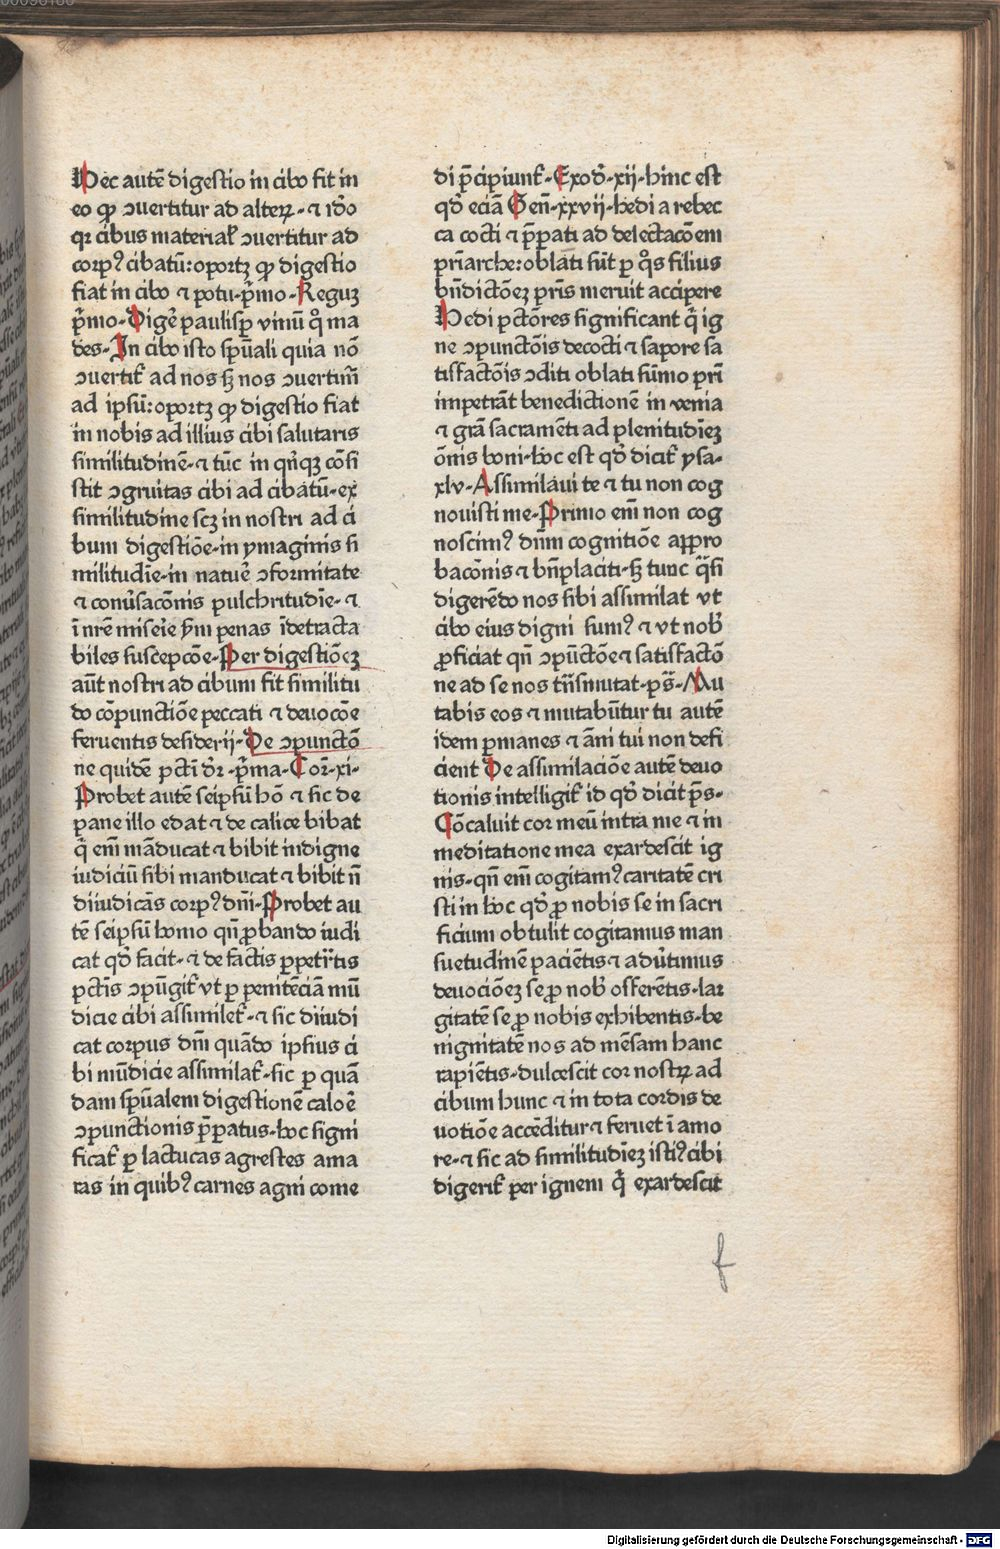 Hec autē digestio in cibo fit in
eo ꝙ ↄuertitur ad alterꝝ · ⁊ iđo
qꝛ cibus materiaƚ ↄuertitur ad
corpꝰ cibatū: oportꝫ ꝙ digestio
fiat in cibo ⁊ potu · p̄mo · Reguꝫ
p̄mo · Digē paulisꝑ vinū qͦ ma
des · In cibo isto sp̄uali quia nō
ↄuertit̄ ad nos sꝫ nos ↄuertim̄
ad ipsū: oportꝫ ꝙ digestio fiat
in nobis ad illius cibi salutaris
similitudinē · ⁊ tūc in qn̄qꝫ cōsi
stit ↄgruitas cibi ad cibatū · ex
similitudine scꝫ in nostri ad ci
bum digestiōe · in ymaginis si
militudīe · in natuē ↄformitate
⁊ conūsacōnis pulchritudīe · ⁊
ī nr̄e miseīe ꝟm penas īdetracta
biles suscepcōe · Per digestiōeꝫ
aūt nostri ad cibum fit similitu
do cōpunctiōe peccati ⁊ deuocōe
feruentis desiderij · De ↄpunctō
ne quidē pctī dr̄ · p̄ma · Cor̄ · xi ·
Probet autē seipsū hō ⁊ sic de
pane illo edat ⁊ de calice bibat
q̄ em̄ māducat ⁊ bibit indigne
iudiciū sibi manducat ⁊ bibit n̄
diiudicās corpꝰ dn̄i · Probet au
tē seipsū homo qn̄ ꝓbando iudi
cat qđ facit · ⁊ de factis ꝑpetratis
pctīs ↄpūgit̄ vt ꝑ penitēciā mū
dicie cibi assimilet̄ · ⁊ sic diiudi
cat corpus dn̄i quādo ipsius ci
bi mūdicie assimilat̄ · sic ꝑ quā
dam sp̄ualem digestionē caloē
ↄpunctionis p̄ꝑatus · hoc signi
ficat̄ ꝑ lactucas agrestes ama
ras in quibꝰ carnes agni come
di p̄cipiunt̄ · Exođ · xij · hinc est
qđ eciā Gen̄ · xxvij · hedi a rebec
ca cocti ⁊ p̄ꝑati ad delectacōem
pr̄iarche: oblati sūt ꝑ qͦs filius
bn̄dictōeꝫ pr̄is meruit accipere
Hedi pctōres significant q̄ ig
ne ↄpunctōis decocti ⁊ sapore sa
tisfactōis ↄditi oblati sūmo pr̄i
impetrāt benedictionē in venia
⁊ grā sacramēti ad plenitudīeꝫ
ōnis boni · hoc est qđ dicit̄ ysa ·
xlv · Assimilaui te ⁊ tu non cog
nouisti me · Primo em̄ non cog
noscimꝰ dn̄m cognitiōe appro
bacōnis ⁊ bn̄placiti · sꝫ tunc q̄si
digerēdo nos sibi assimilat vt
cibo eius digni sumꝰ ⁊ vt nob̄
ꝓficiat qn̄ ↄpūctōe ⁊ satisfactō
ne ad se nos tn̄smutat · ps̄ · Mu
tabis eos ⁊ mutabūtur tu autē
idem ꝑmanes ⁊ āni tui non defi
cient De assimilaciōe autē deuo
tionis intelligit̄ id qđ dicit ps̄ ·
Cōcaluit cor meū intra me ⁊ in
meditatione mea exardescit ig
nis · qn̄ em̄ cogitamꝰ caritatē cri
sti in hoc qđ ꝓ nobis se in sacri
ficium obtulit cogitamus man
suetudinē paciētis ⁊ adūtimus
deuociōeꝫ se ꝓ nob̄ offerētis · lar
gitatē se ꝓ nobis exhibentis · be
nignitatē nos ad mēsam hanc
rapiētis · dulcescit cor nostrꝝ ad
cibum hunc ⁊ in tota cordis de
uotiōe accēditur ⁊ feruet ī amo
re · ⁊ sic ad similitudīeꝫ istiꝰ cibi
digerit̄ per ignem q̄ exardescit
f
Digitalisierung gefördert durch die Deutsche Forschungsgemeinschaft - DFG